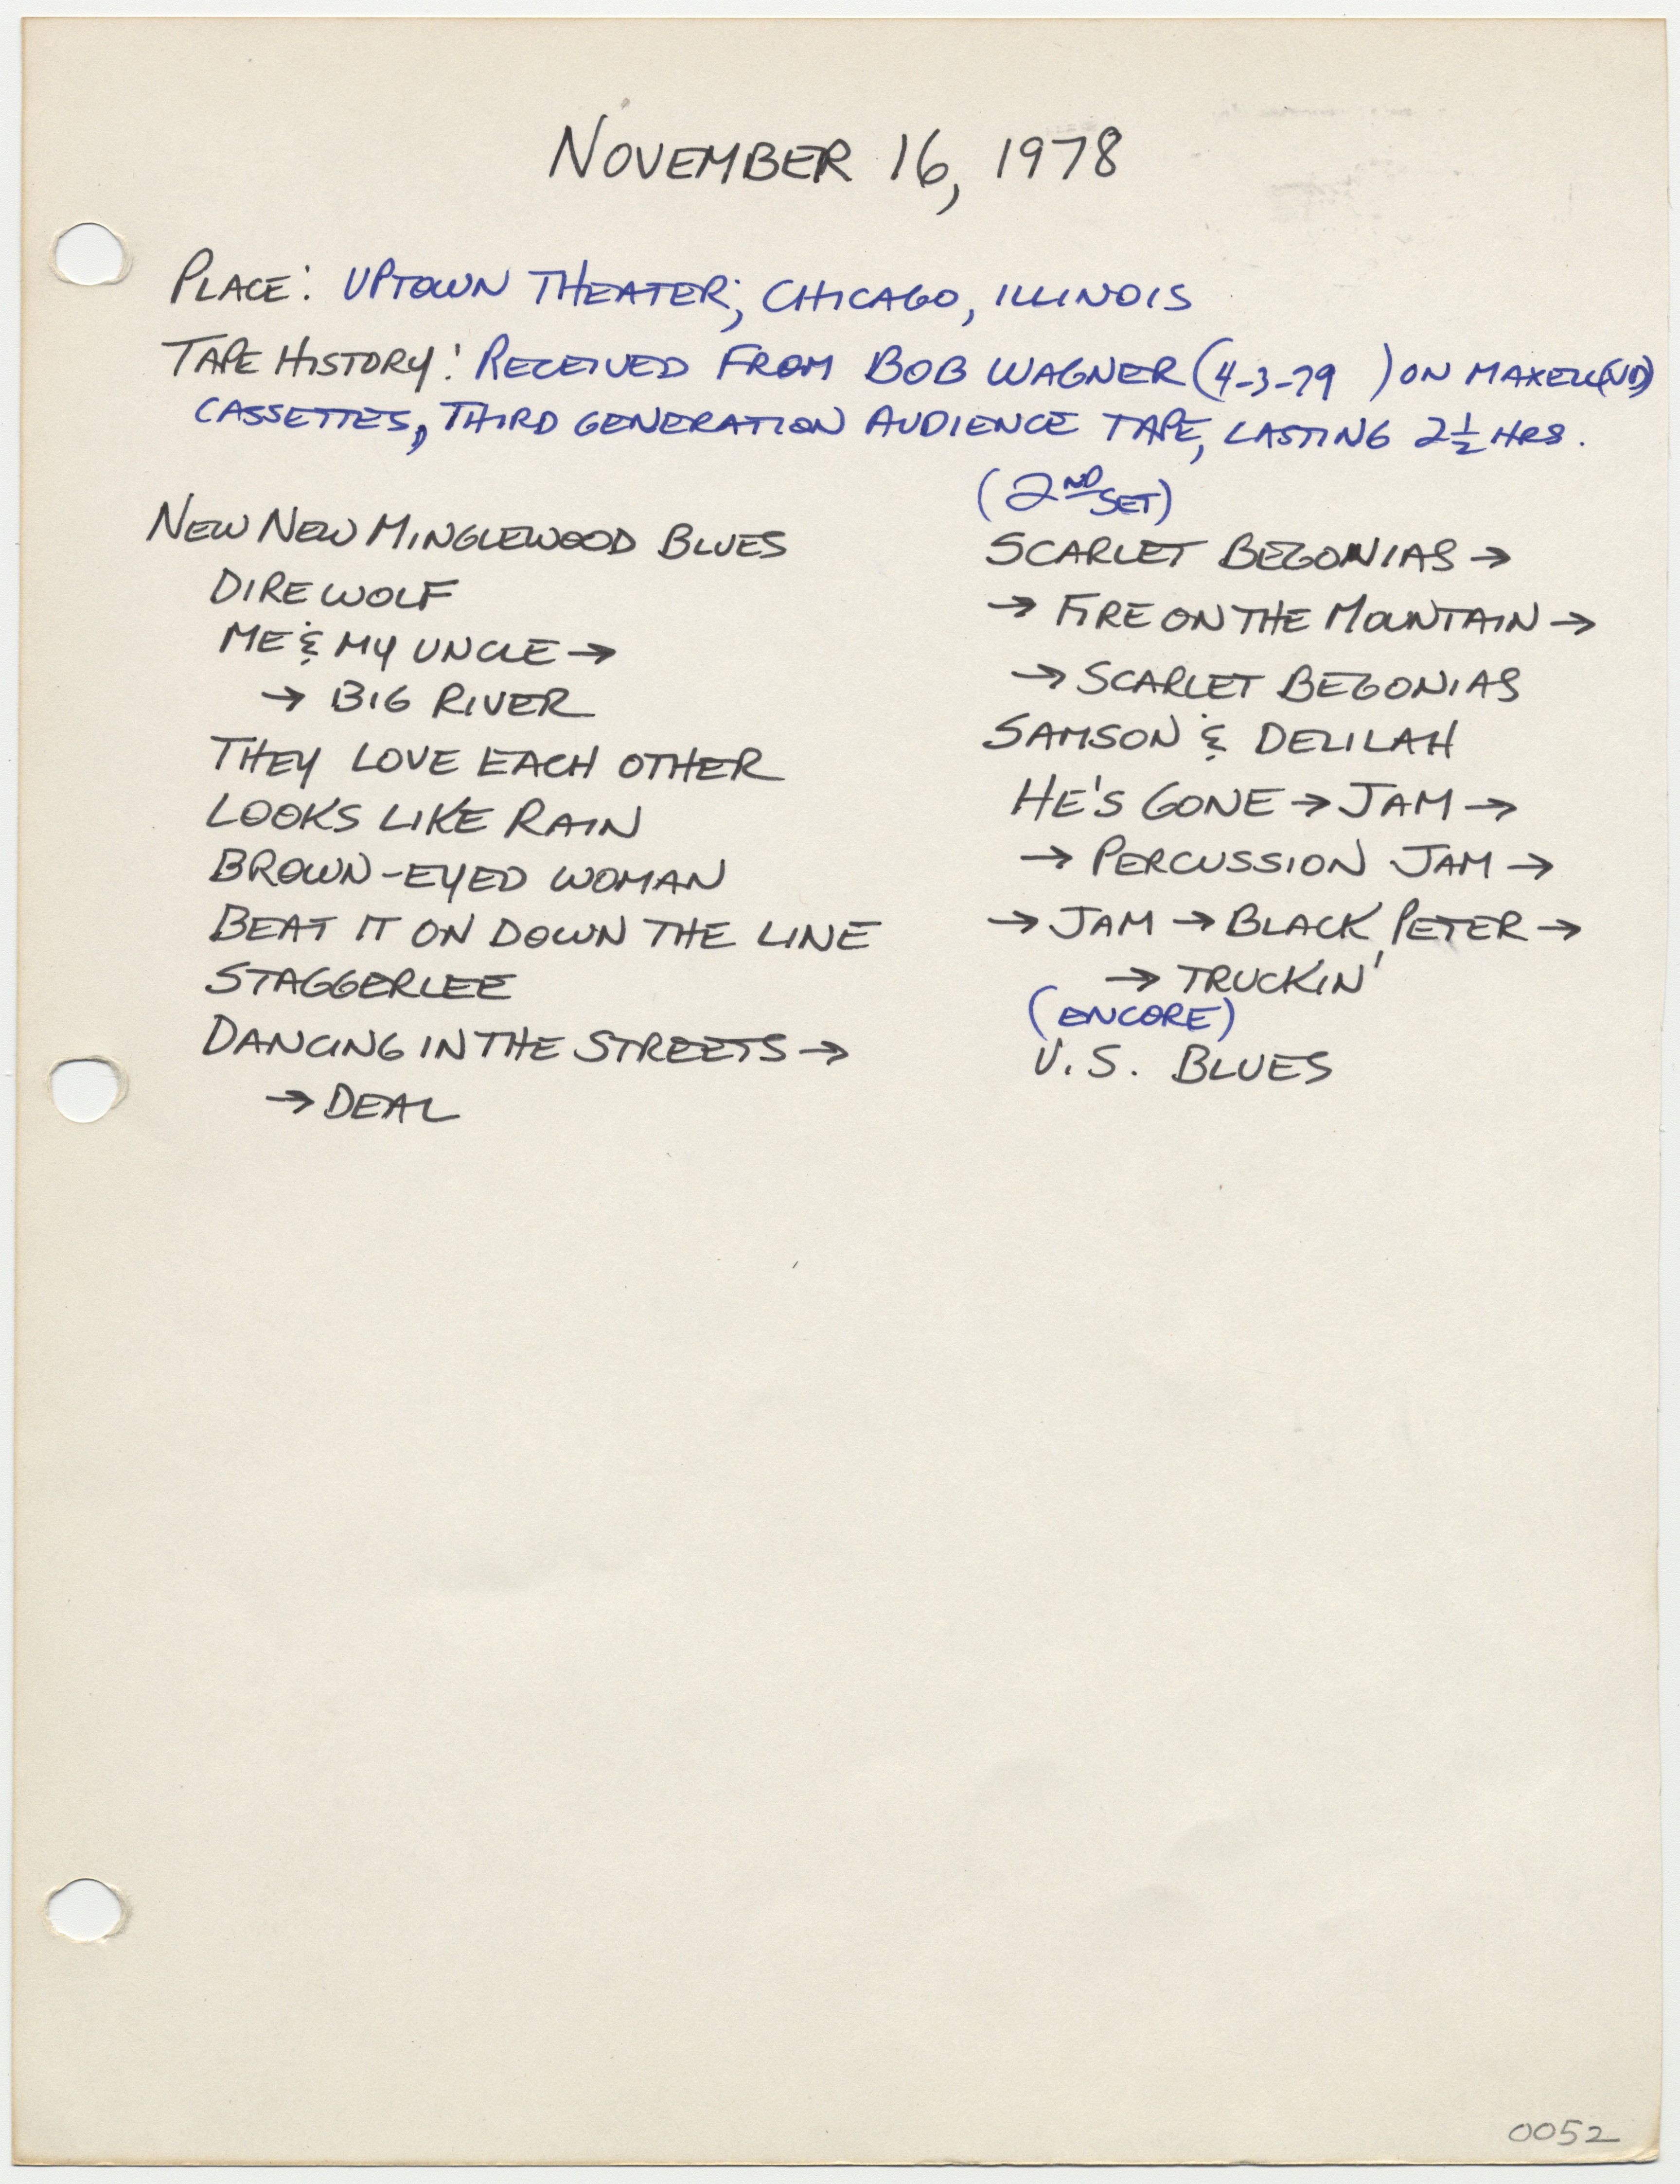 NOVEMBER 16, 1978
PLACE: UPTOWN THEATER; CHICAGO, ILLINOIS
TAPE HISTORY: RECEIVED FROM BOB WAGNER (4-3-79 ) ON MAXELL (UD)
CASSETTES, THIRD GENERATION AUDIENCE TAPE, LASTING 2 1/2 HRS.
NEW NEW MINGLEWOOD BLUES
DIRE WOLF
ME & MY UNCLE →
→ BIG RIVER
THEY LOVE EACH OTHER
LOOKS LIKE RAIN
BROWN-EYED WOMAN
BEAT IT ON DOWN THE LINE
STAGGERLEE
DANCING IN THE STREETS →
→ DEAL
(2ND SET)
SCARLET BEGONIAS →
→ FIRE ON THE MOUNTAIN →
→ SCARLET BEGONIAS
SAMSON & DELILAH
HE'S GONE → JAM →
→ PERCUSSION JAM →
→ JAM → BLACK PETER →
→ TRUCKIN'
(ENCORE)
U.S. BLUES
0052